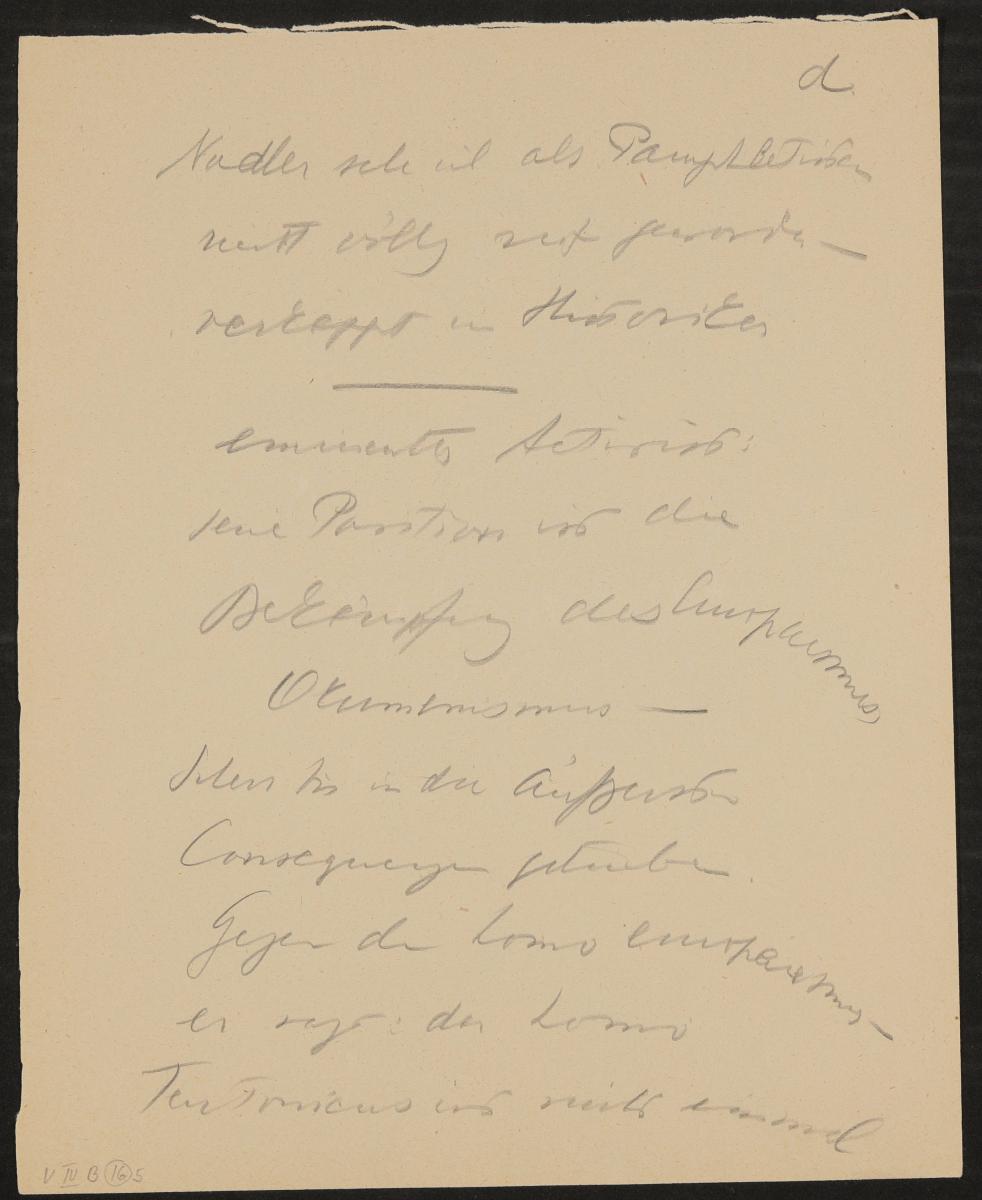 d.
Nadler seh ich als Pamphletisten
nicht völlig reif geworden —
verkappt in Historiker
eminenter Activist:
seine Passion ist die
Bekämpfung des Europaeismus,
Okumenismus —
bis in die äußersten
Consequenzen getrieben.
Gegen den homo europaeismus —
er sagt: der homo
Teutonicus ist nicht einmal
V IV B 16 5